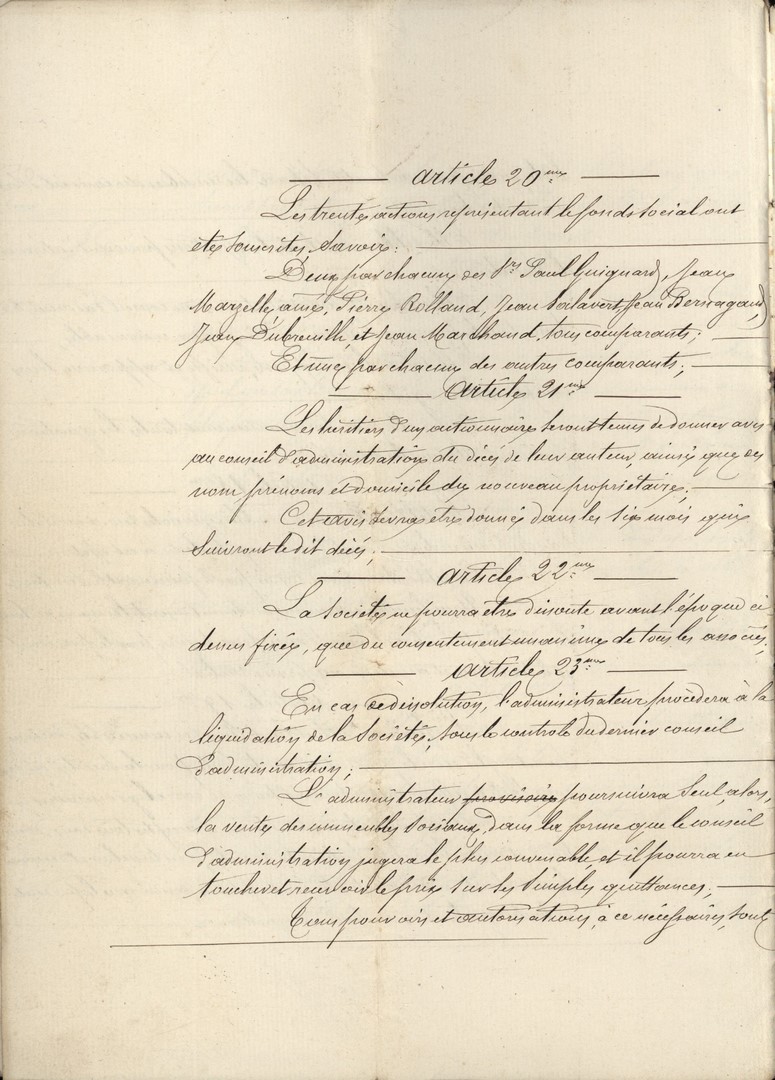 article 20me
Les trente actions représentant le fonds social ont
étés souscrites, savoir :
Deux par chacun des Srs Paul Guignard, Jean
Marzelle aîné, Pierre Rolland, Jean Jean Bernagaud,
Jean Dubreuilh, et Jean Marchand, tous comparants ;
Et une par chacun des autres comparants ;
article 21me
Les héritiers d'un actionnaire seront tenus de donner avis
au conseil d'administration du décès de leur auteur, ainsi que des
nom prénoms et domicile du nouveau propriétaire ;
Cet avis devra etre donné dans les six mois qui
suivront le dit décès ;
article 22me
La Société ne pourra etre dissoute avant l'époque ci
dessus fixée, que du consentement unanime de tous les associés ;
article 23me
En cas de dissolution, l'administrateur procèdera à la
liquidation de la Société, sous le controle du dernier conseil
d'administration ;
L'administrateur provisoire poursuivra seul, alors,
la vente des immeubles sociaux, dans la forme que le conseil
d'administration jugera le plus convenable et il pourra en
toucher et recevoir le prix sur les simples quittances ;
Tous pouvoirs et autorisations, à ce nécessaires, sont